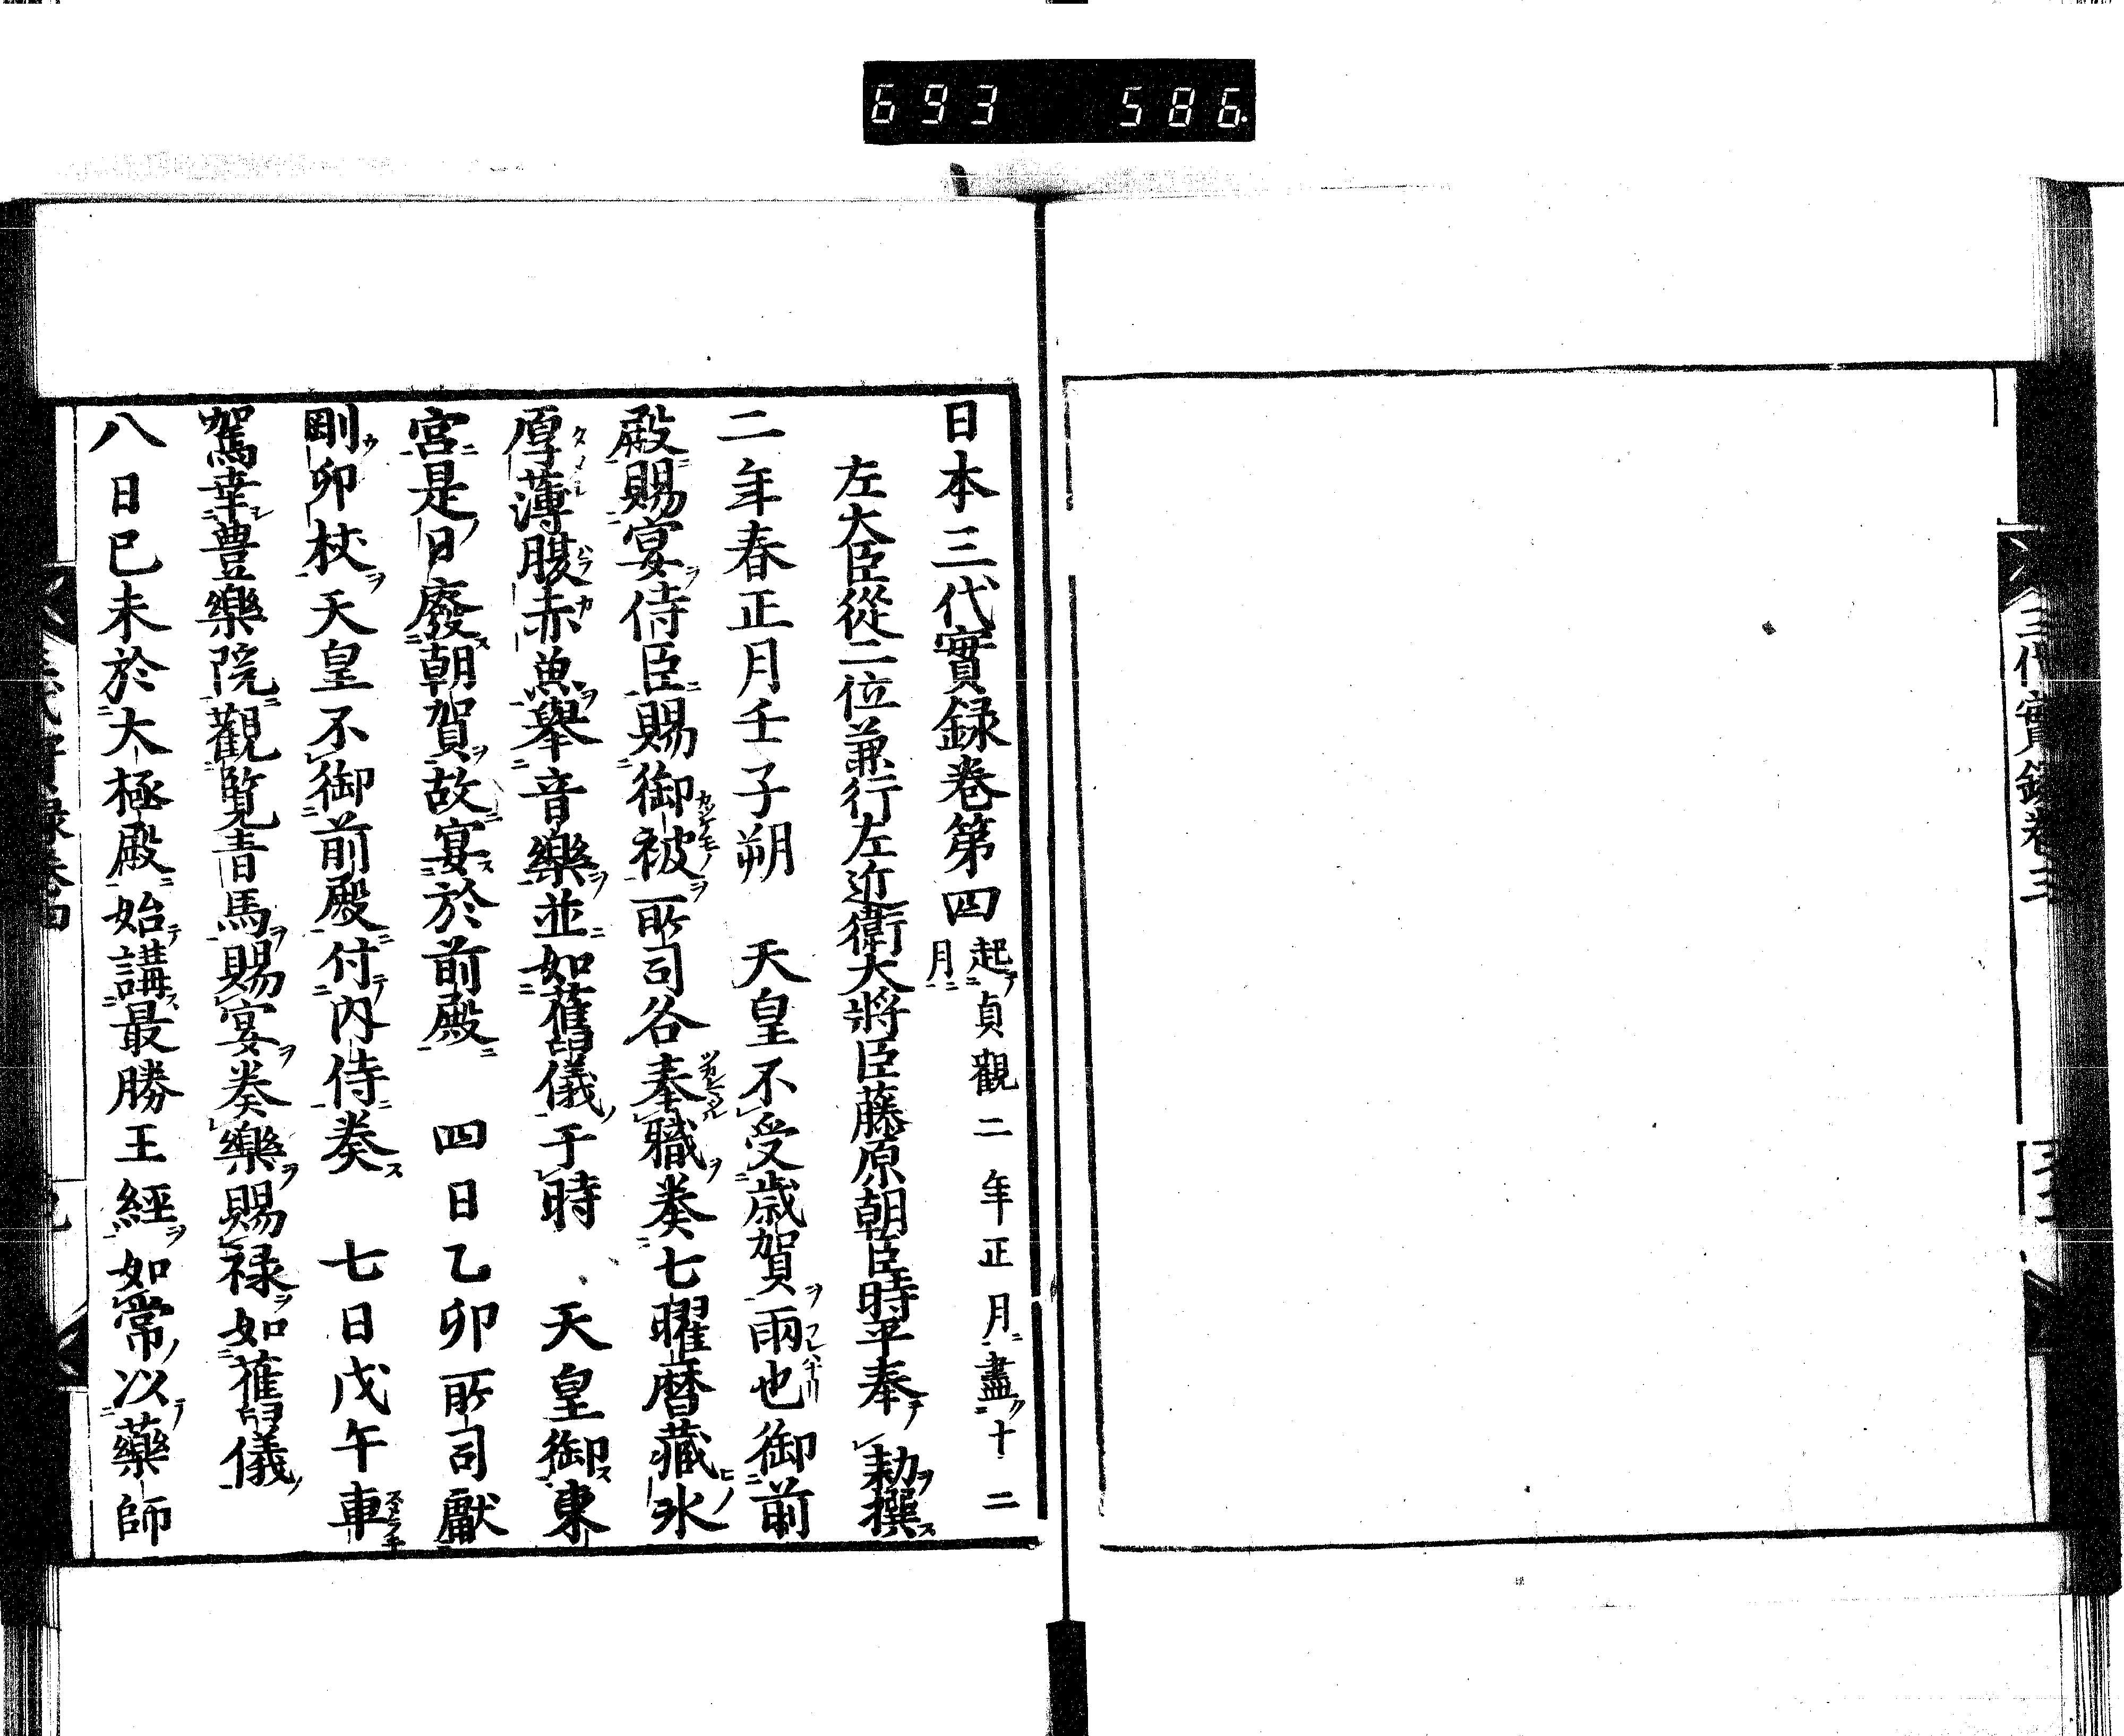 693 586.
三代實録卷三
日本三代實録卷第四 起貞觀二年正月盡十二月
左大臣從二位兼行左近衛大將臣藤原朝臣時平奉 勅撰
二年春正月壬子朔 天皇不受歳賀雨也御前
殿賜宴侍臣賜御被所司各奉職奏七曜暦藏氷
厚薄腹赤魚舉音樂並如舊儀于時 天皇御東
宮是日廢朝賀故宴於前殿 四日乙卯所司獻
剛卯杖天皇不御前殿付内侍奏 七日戊午車
駕幸豊樂院觀覧青馬賜宴奏樂賜禄如舊儀
八日巳未於大極殿始講最勝王經如常以藥師